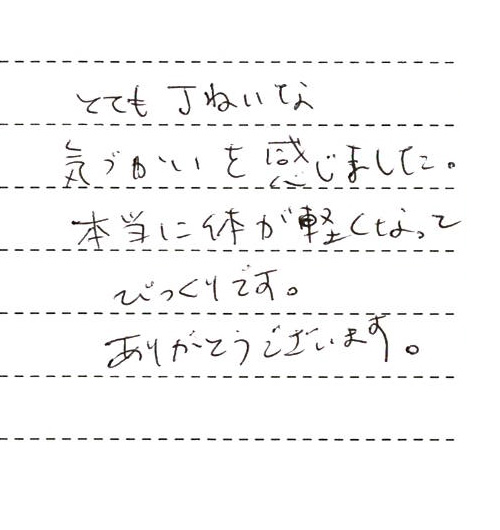 とても丁ねいな
気づかいを感じました。
本当に体が軽くなって
びっくりです。
ありがとうございます。